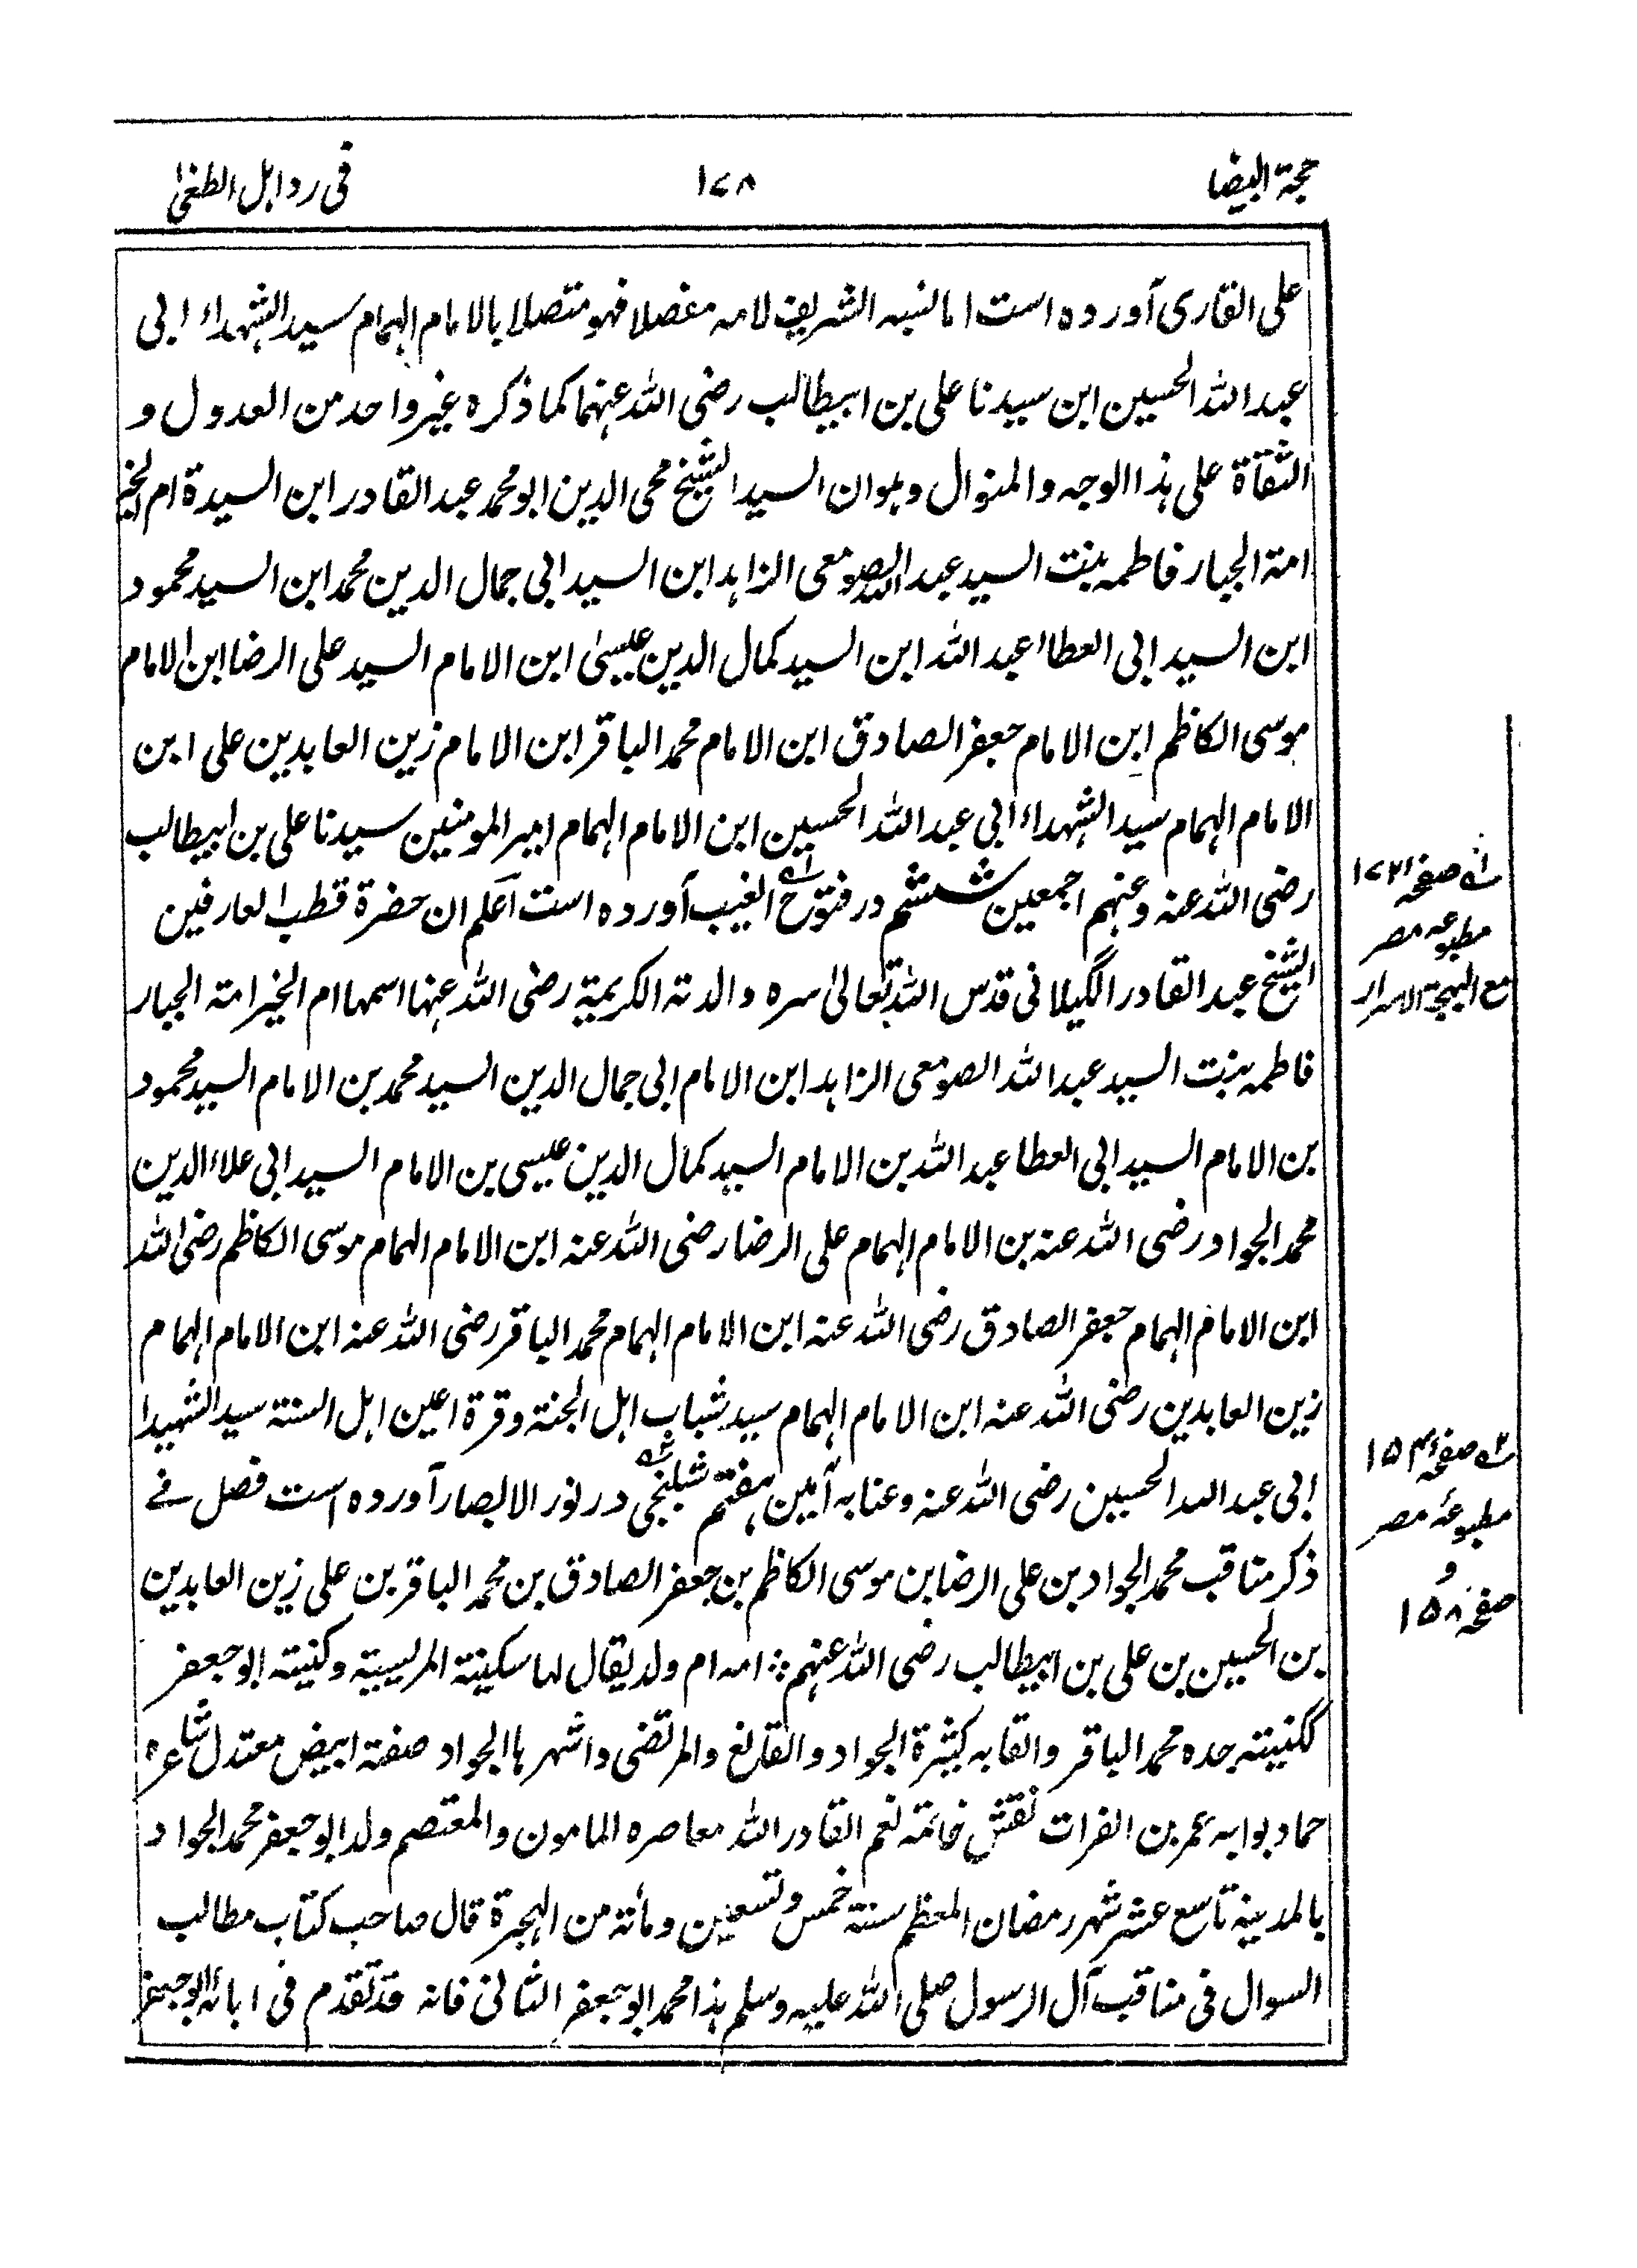 حجة البیضا ١٧٨ فی رد اہل الطغیٰ
علی القاری آوردہ است اما نسبہ الشریف لامہ مفصلا فهو متصلا بالامام الہمام سید الشہداء ابی
عبد اللہ الحسین ابن سیدنا علی بن ابیطالب رضی اللہ عنہما کما ذکرہ غیر واحد من العدول و
الثقاة علی ہذا الوجہ والمنوال وہو ان السید الشیخ محی الدین ابو محمد عبد القادر ابن السیدة ام الخیر
امة الجبار فاطمہ بنت السید عبد اللہ الصومعی الزاہد ابن السید ابی جمال الدین محمد ابن السید محمود
ابن السید ابی العطا عبد اللہ ابن السید کمال الدین عیسیٰ ابن الامام السید علی الرضا ابن الامام
موسی الکاظم ابن الامام جعفر الصادق ابن الامام محمد الباقر ابن الامام زین العابدین علی ابن
الامام الہمام سید الشہداء ابی عبد اللہ الحسین ابن الامام الہمام امیر المومنین سیدنا علی بن ابیطالب
رضی اللہ عنہ وعنہم اجمعین ششم در فتوح الغیب آوردہ است آعلم ان حضرة قطب العارفین
الشیخ عبد القادر الگیلانی قدس اللہ تعالیٰ سرہ والدتہ الکریمیة رضی اللہ عنہا اسمہا ام الخیر امة الجبار
فاطمہ بنت السید عبد اللہ الصومعی الزاہد ابن الامام ابی جمال الدین السید محمد بن الامام السید محمود
بن الامام السید ابی العطا عبد اللہ بن الامام السید کمال الدین عیسی بن الامام السید ابی علاء الدین
محمد الجواد رضی اللہ عنہ بن الامام الہمام علی الرضا رضی اللہ عنہ ابن الامام الہمام موسی الکاظم رضی اللہ
ابن الامام الہمام جعفر الصادق رضی اللہ عنہ ابن الامام الہمام محمد الباقر رضی اللہ عنہ ابن الامام الہمام
زین العابدین رضی اللہ عنہ ابن الامام الہمام سید شباب اہل الجنة وقرة اعین اہل السنة سید الشہیدا
ابی عبد اللہ الحسین رضی اللہ عنہ وعنا بہ آمین ہفتم شبلنجی در نور الابصار آوردہ است فصل فے
ذکر مناقب محمد الجواد بن علی الرضا بن موسی الکاظم بن جعفر الصادق بن محمد الباقر بن علی زین العابدین
بن الحسین بن علی بن ابیطالب رضی اللہ عنہم امہ ام ولد یقال لہا سکینة المریسیة وکنیتہ ابو جعفر
ککنیتہ جدہ محمد الباقر والقابہ کثیرة الجواد والقانع والمرتضی واشہرہا الجواد صفتہ ابیض معتدل شاعرہ
حماد بوابہ عمر بن الفرات نقش خاتمہ نعم القادر اللہ معاصرہ المامون والمعتصم ولد ابو جعفر محمد الجواد
بالمدینہ تاسع عشر شہر رمضان المعظم سنتہ خمس وتسعین ومائة من الہجرة قال صاحب کتاب مطالب
السوال فی مناقب آل الرسول صلی اللہ علیہ وسلم ہذا محمد ابو جعفر الثانی فانہ قد تقدم فی ابائہ ابو جعفر
صفحہ ١٧٢
مطبوعہ مصر
مع البہجة الاسرار
صفحہ ١٥٤
مطبوعہ مصر
و
صفحہ ١٥٨